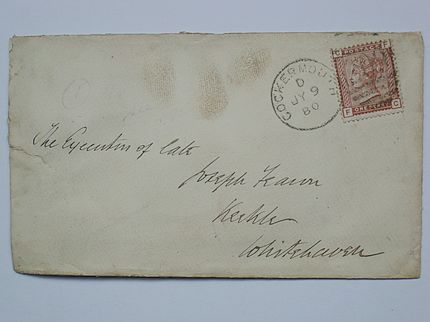 COCKERMOUTH
D
JY 9
80
POSTAGE
C F
F C
The Executors of late
Joseph Fearon
Keekle
Whitehaven